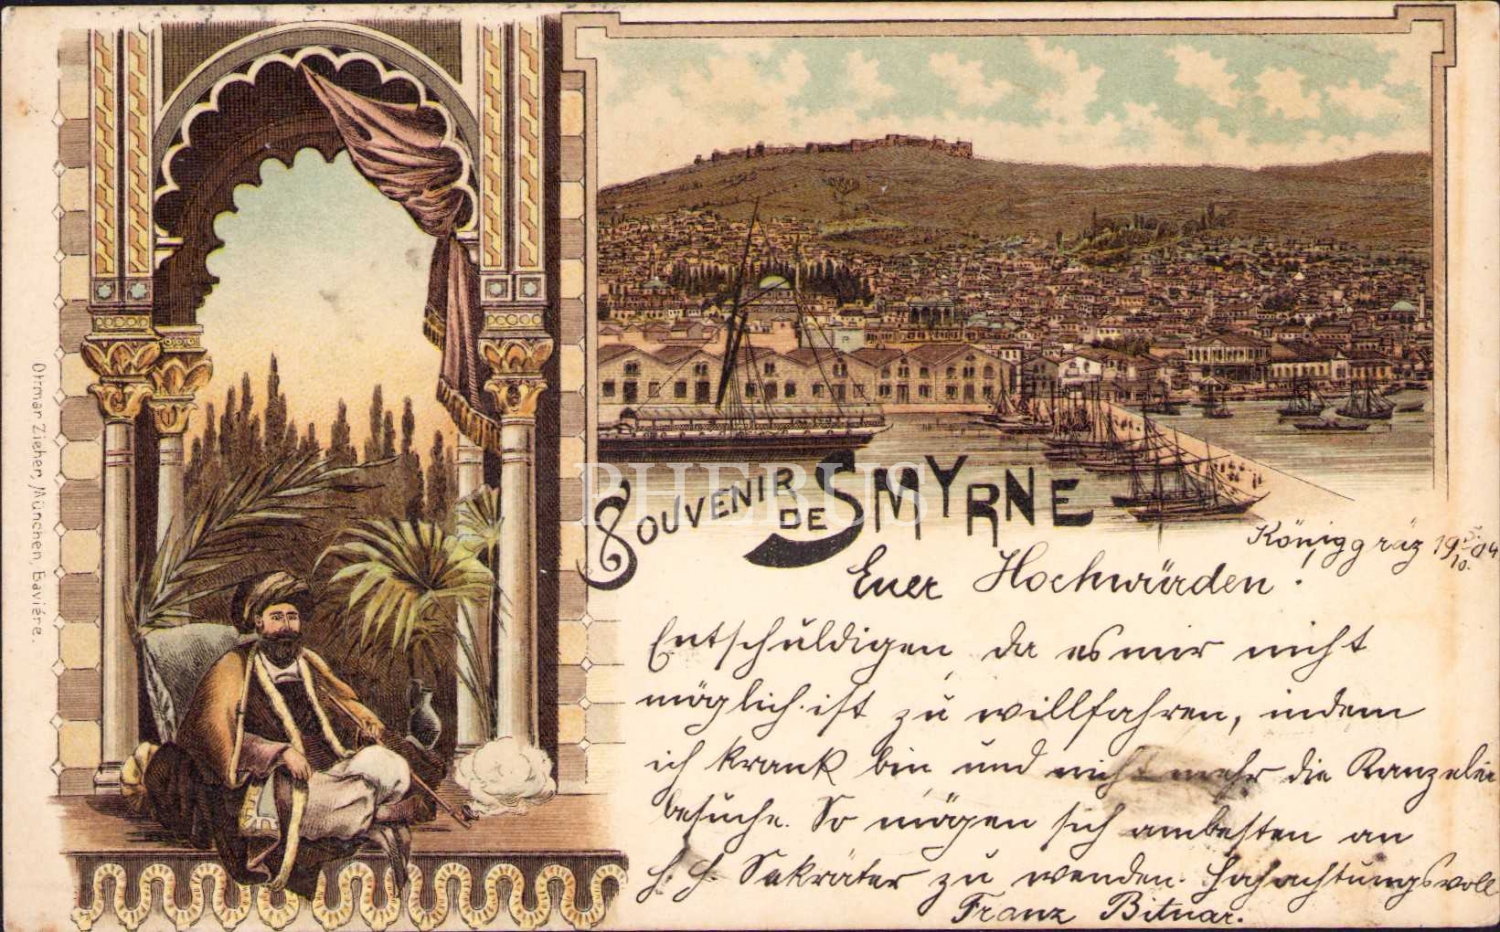 SOUVENIR DE SMYRNE
PHEBUS
Ottmar Zieher, München, Bavière.
Königgräz 19 5./10. 04
Euer Hochwürden!
Entschuldigen, da es mir nicht
möglich ist zu willfahren, indem
ich krank bin und nicht mehr die Kanzelei
besuche. So mögen sich ambesten an
H. H. Sekräter zu wenden. Hochachtungsvoll
Franz Bitnar.